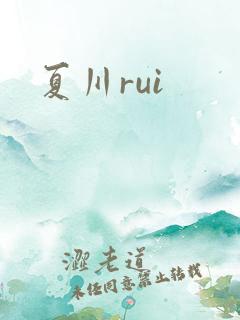 夏川rui
澀老道
未经同意禁止转载